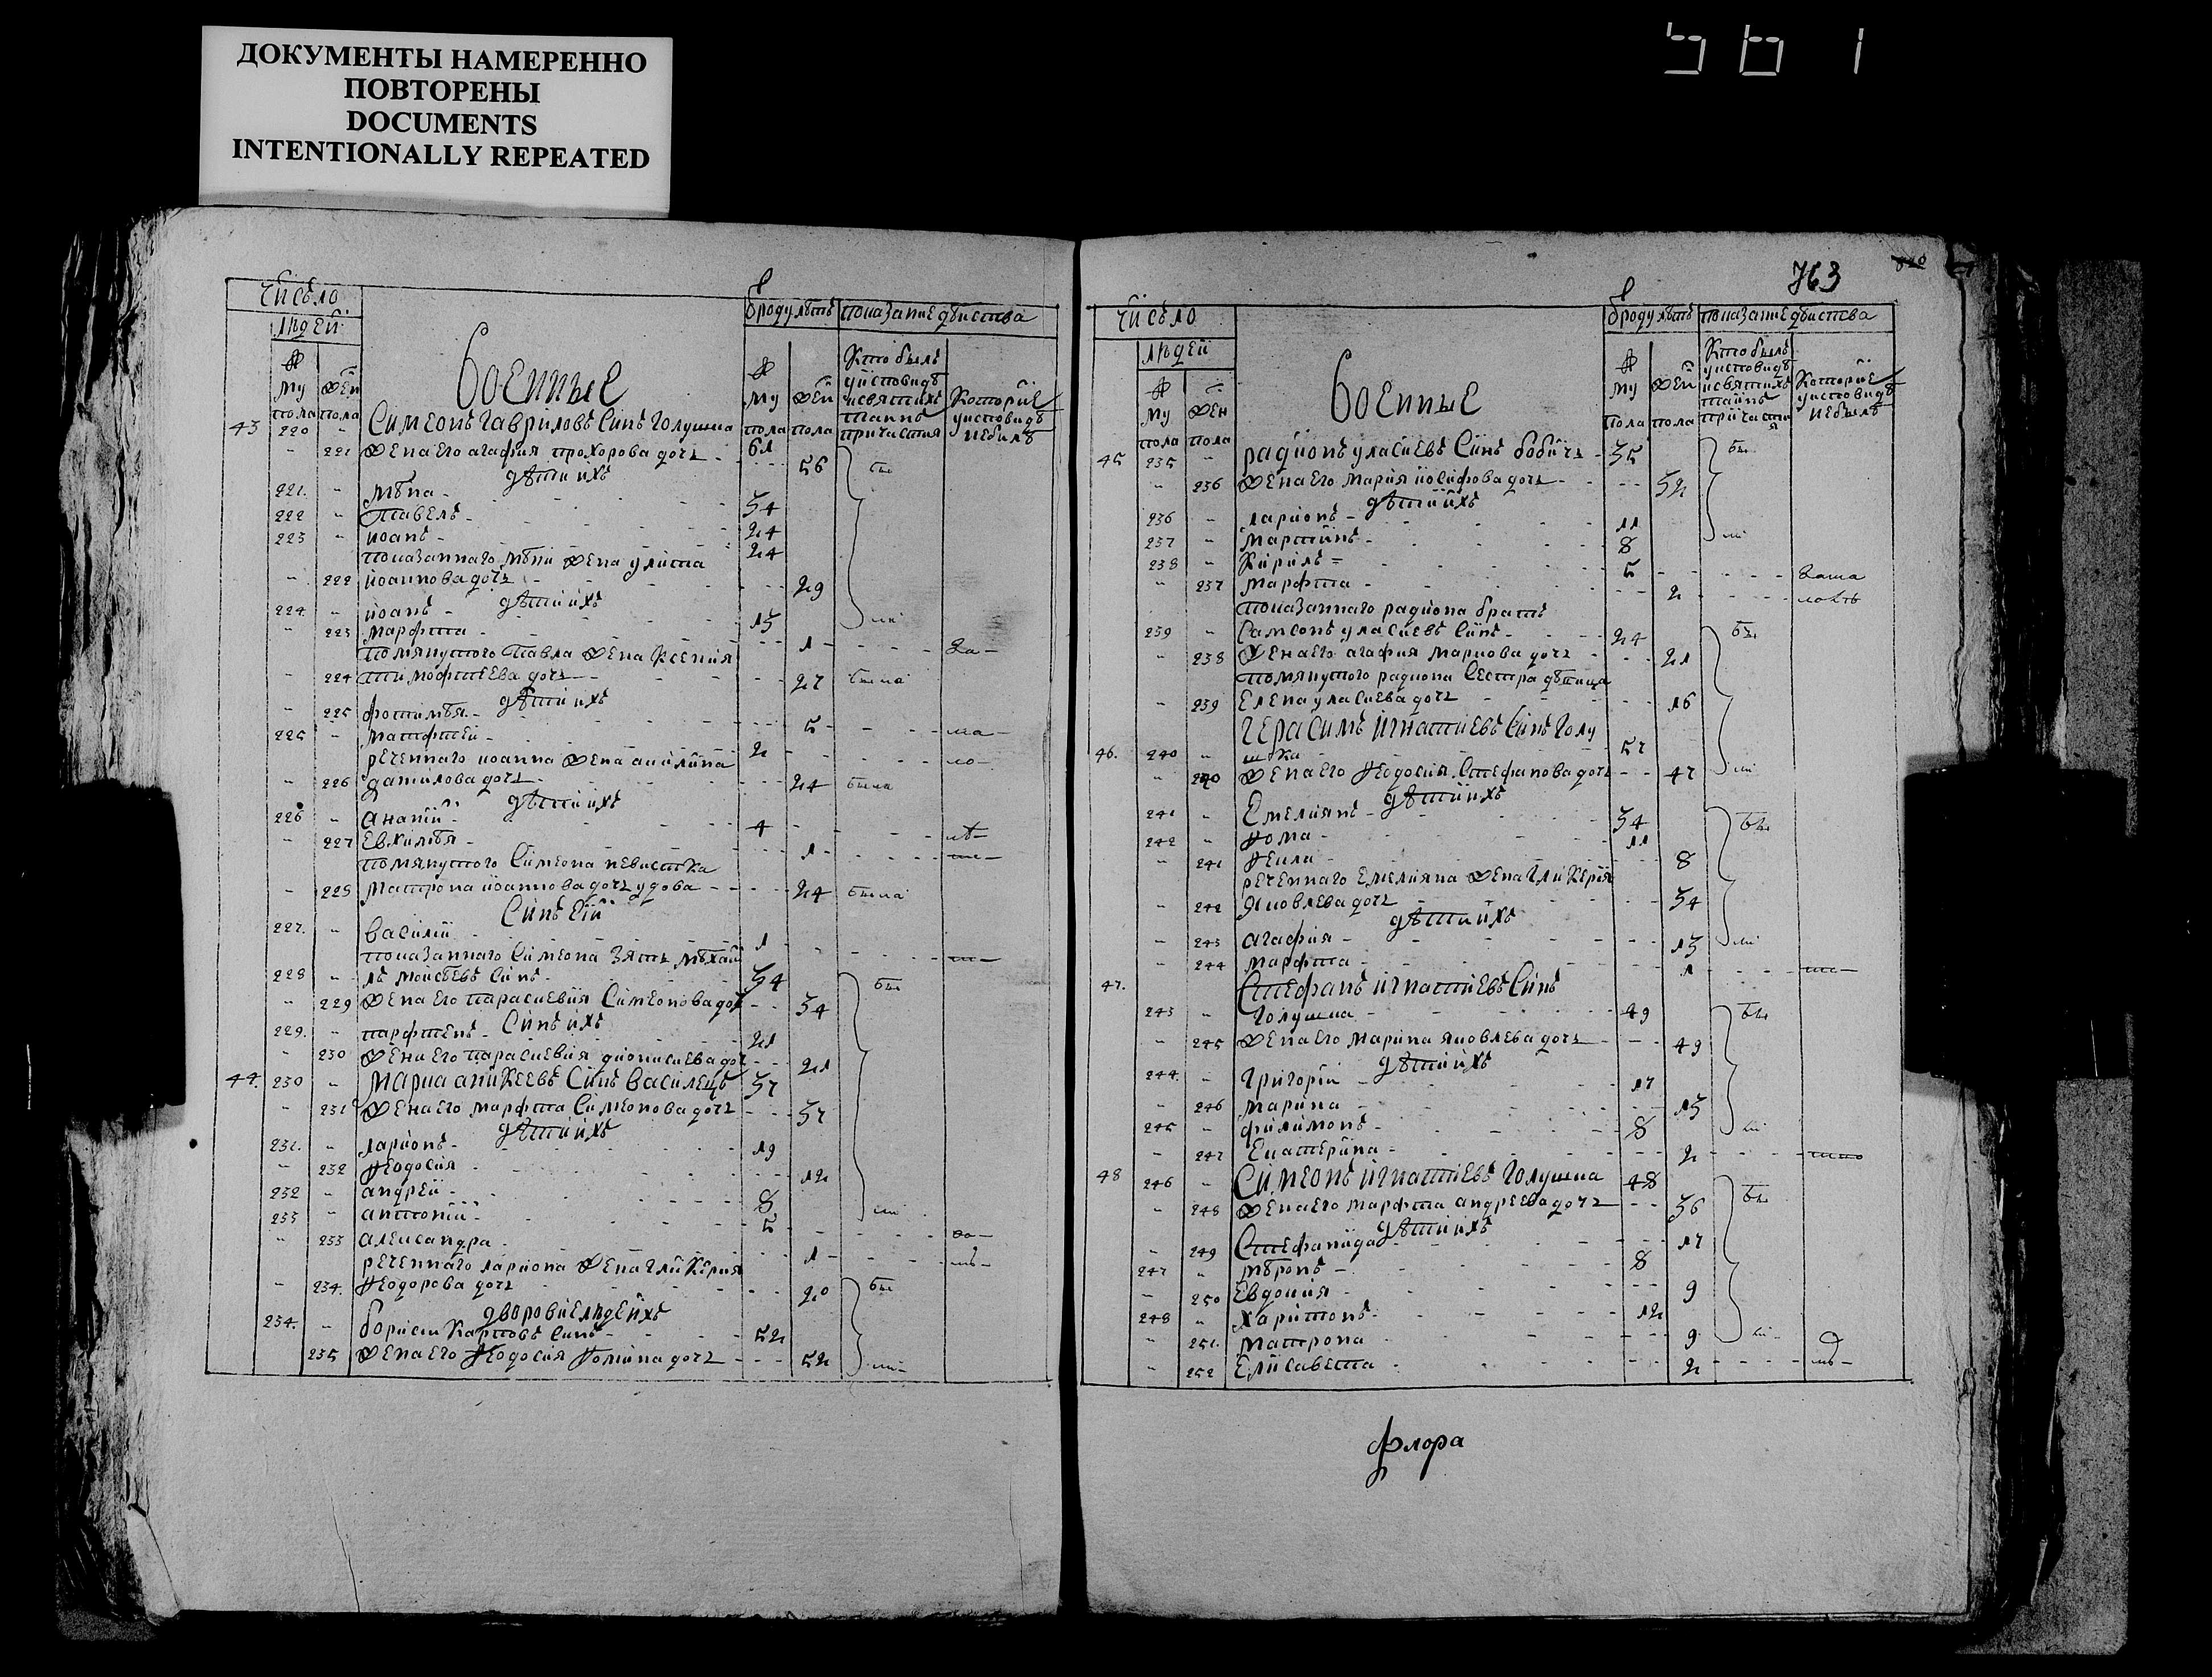 ДОКУМЕНТЫ НАМЕРЕННО
ПОВТОРЕНЫ
DOCUMENTS
INTENTIONALLY REPEATED
763
Число людей
му пола жен пола
Военные
Втоду лѣтъ
му пола жен пола
показание дѣиства
Кто былъ уисповиди исвятихъ таинъ причастия
Которие уисповиди небилѣ
43 220 " Симеонъ Гавриловъ Синъ Голушка 61
" 221 Жена Его агафия прохорова дочь 56
дѣти ихъ
221. " мѣна 34
222 " Павелъ 24
223 " иоанъ 24
показанного мѣни Жена улита
" 222 иоаннова дочь 29
дѣти ихъ
224 " иоанъ 13
" 223 марфта 1
помянутого Павла Жена Ксения
" 224 тимофтеева дочь 27 била
дѣти ихъ
" 225 фотимѣя 5
225 " матфтей 2
реченного иоанна Жена акилина
" 226 данилова дочь 24 била
дѣти ихъ
226 " Ананий 4
" 227 Евхимѣя 1
помянутого Симеона невистка
" 228 матрона иоаннова дочь удова 24 била
Синъ Ей
227. " василий 1
показанного Симеона Зять мѣхаи
228 " лъ моисѣевъ Синъ 34
" 229 Жена Его Параскевия Симеонова доч 34
Синъ ихъ
229. " парфтенъ 21
" 230 Жена Его Параскевия дионисиева доч 21
44. 230 " Марка аникеевъ Синъ Василецъ 37
" 231 Жена Его марфта Симеонова дочь 37
дѣти ихъ
231. " ларионъ 19
" 232 Феодосия 12
232 " андрей 8
233 " антоний 5
" 233 александра 1
реченного лариона Жена Гликерия
" 234. Феодорова дочь 20
дворовие людеихъ
234. " борисъ Карповъ Синъ 52
235 Жена Его Феодосия Фомина дочь 52
Число людей
му пола жен пола
Военные
Втоду лѣтъ
му пола жен пола
показание дѣиства
Кто былъ уисповиди исвятихъ таинъ причастия
Которие уисповиди небылѣ
45 235 " радионъ уласиевъ Синъ бобичъ 35
" 236 Жена Его Мария иосифова дочь 32
дѣти ихъ
236 " ларионъ 11
237 " мартинъ 8
238 " Кирилъ 5
" 237 марфта 2
показанного радиона братъ
239 " Самсонъ уласиевъ Синъ 24
" 238 Жена Его агафия маркова дочь 21
помянутого радиона Сестра дѣвица
" 239 Елена уласиева дочь 16
Герасимъ игнатиевъ Синъ Голу
46. 240 " шка 57
" 240 Жена Его Феодосия Стефанова дочь 47
дѣти ихъ
241 " Емелиянъ 34
242 " Фома 11
" 241 Фекла 8
реченного Емелияна Жена Гликерия
" 242 Яковлева дочь 34
дѣти ихъ
" 243 агафия 13
" 244 марфта 1
47. Стефанъ игнатиевъ Синъ
243 " Голушка 49
" 245 Жена Его Марина яковлева дочь 49
дѣти ихъ
244. " Григорий 17
" 246 марина 13
245 " филимонъ 8
" 247 Екатерина 2
48 246 " Симеонъ игнатиевъ Голушка 48
" 248 Жена Его марфта андреева дочь 36
дѣти ихъ
" 249 Стефанида 17
247 " мѣронъ 8
" 250 Евдокия 9
248 " Харитонъ 12
" 251. матрона 9
" 252 Елисавета 2
Флора